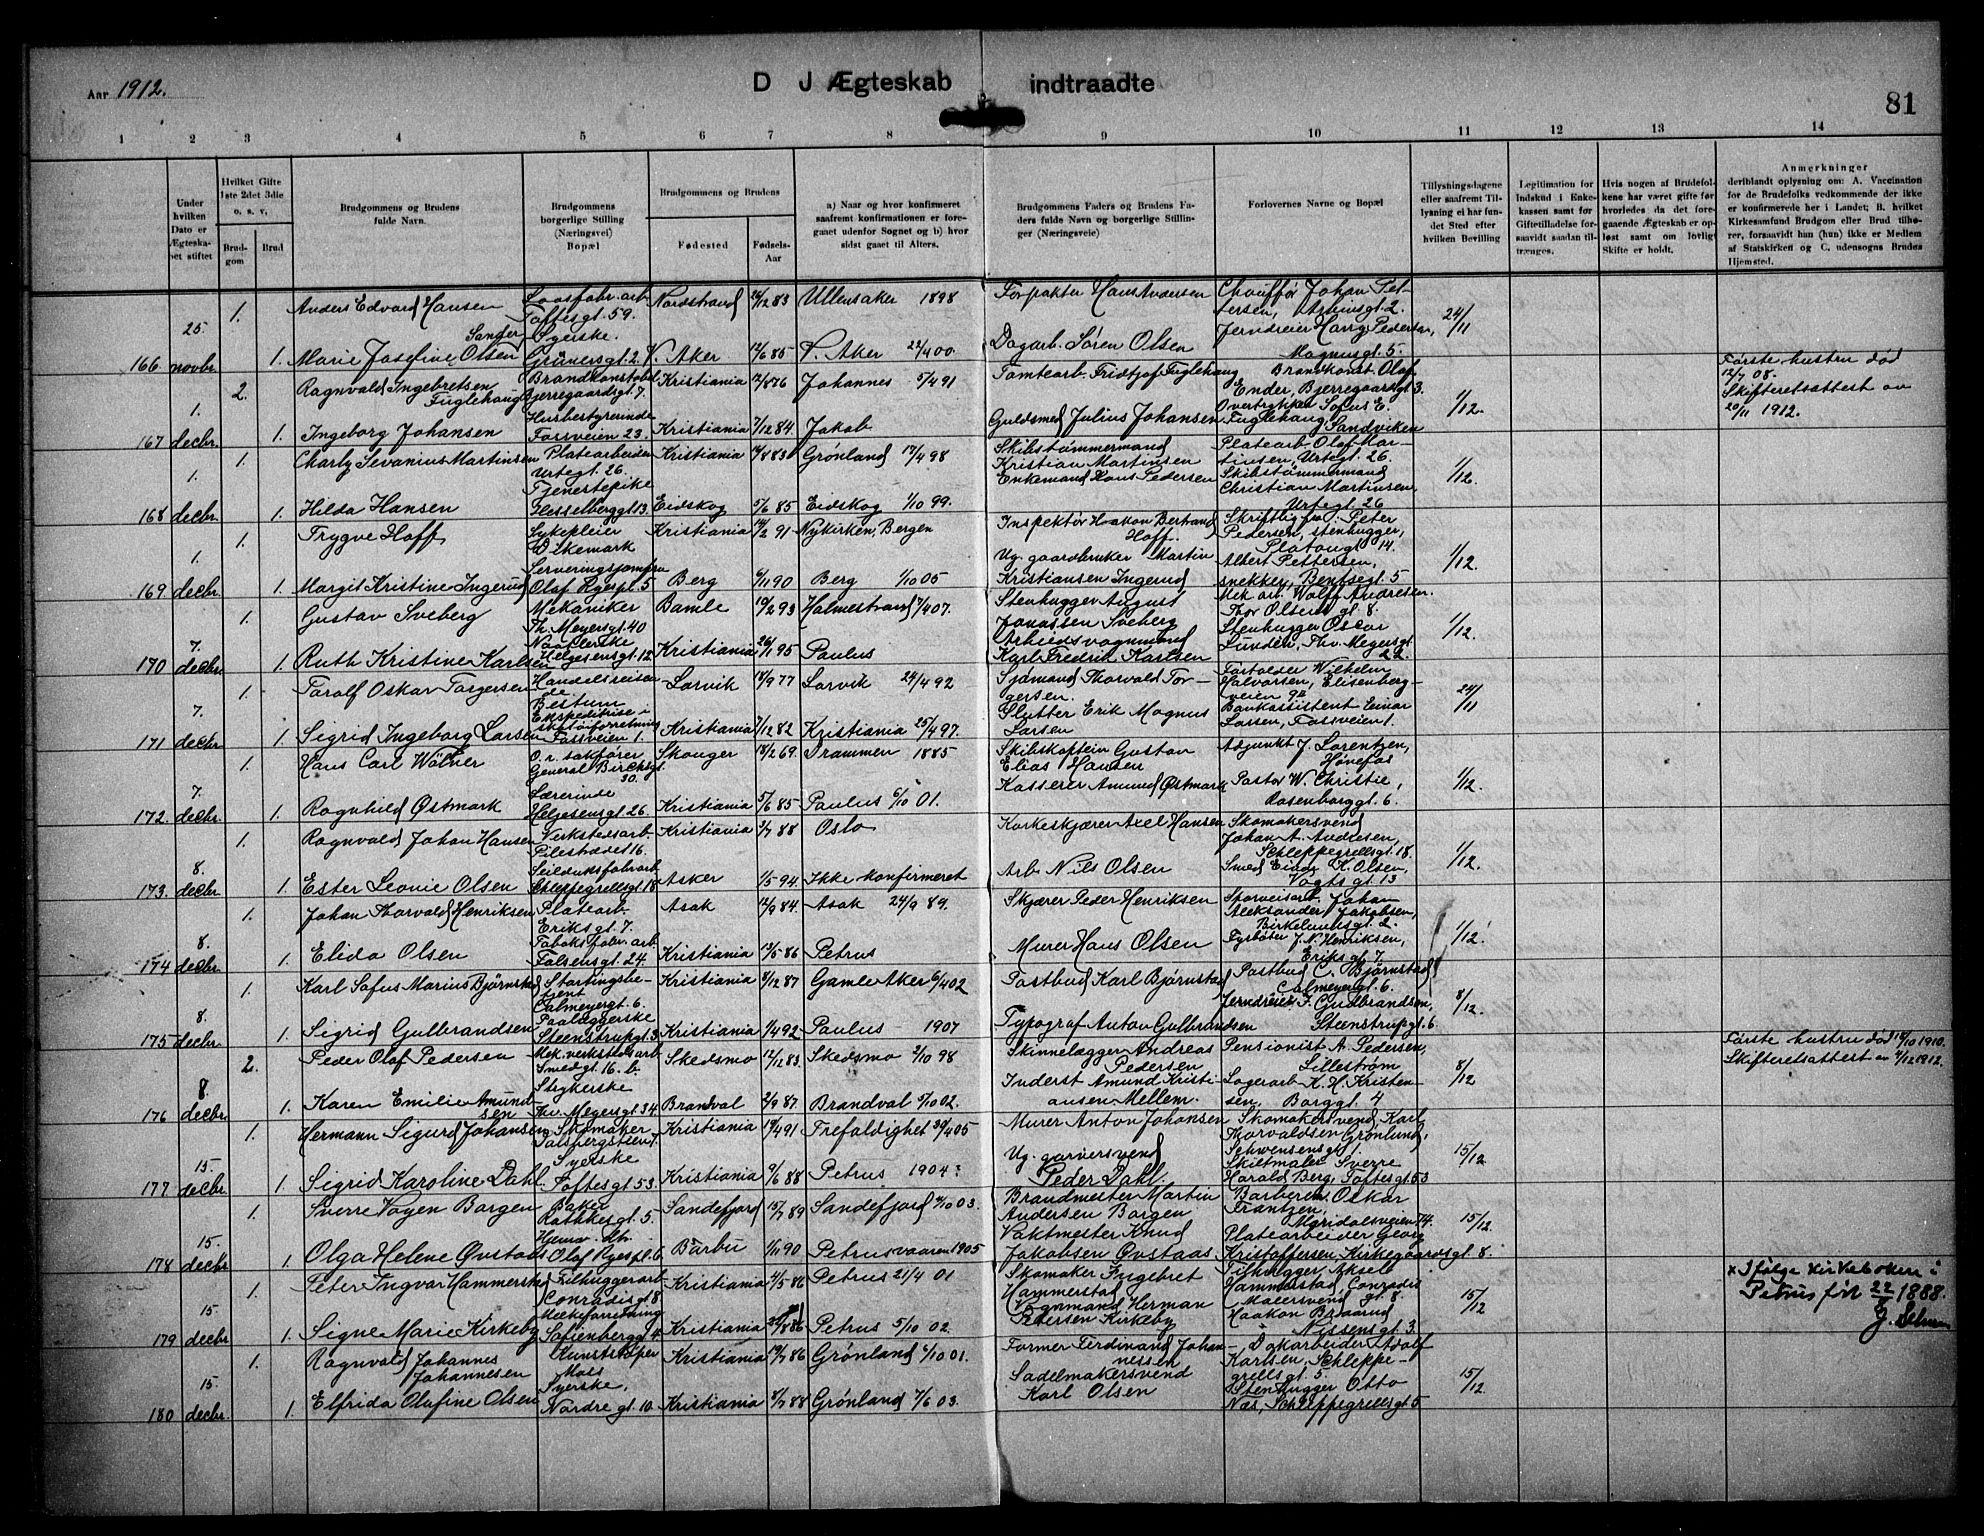 Aar 1912.
D J Ægteskab indtraadte
81
1 2 3 4 5 6 7 8 9 10 11 12 13 14
Under hvilken Dato er Ægteska-bet stiftet
Hvilket Gifte 1ste 2det 3die o. s. v.
Brud-gom
Brud
Brudgommens og Brudens fulde Navn.
Brudgommens borgerlige Stilling (Næringsvei) Bopæl
Brudgommens og Brudens
Fødested
Fødsels-Aar
a) Naar og hvor konfirmeret saafremt konfirmationen er fore-gaaet udenfor Sognet og b) hvor sidst gaaet til Alters.
Brudgommens Faders og Brudens Fa-ders fulde Navn og borgerlige Stillin-ger (Næringsveie)
Forlovernes Navne og Bopæl
Tillysningsdagene eller saafremt Til-lysning ei har fun-det Sted efter hvilken Bevilling
Legitimation for Indskud i Enke-kassen samt for Giftetilladelse for-saavidt saadan til-trænges.
Hvis nogen af Brudefol-kene har været gifte før hvorledes da det fore-gaaende Ægteskab er op-løst samt om lovligt Skifte er holdt.
Anmerkninger deriblandt oplysning om: A. Vaccination for de Brudefolks vedkommende der ikke er konfirmerede her i Landet; B. hvilket Kirkesamfund Brudgom eller Brud tilhø-rer, forsaavidt han (hun) ikke er Medlem af Statskirken og C. udensogns Brudes Hjemsted.
1. Anders Edvard Hansen Sander Toftesgt. 59. Nordstrand 26/12 83 Ullensaker 1898 Forpakter Hans Andersen Chauffør Johan Pet-tersen,
166 25 novbr. 1. Marie Josefine Olsen Syerske. Grünersgt. 2. V. Aker 12/6 85 V. Aker 22/4 00. Dagarb. Søren Olsen Jerndreier Harry Pedersen, Magnusgt. 5. 24/11
2. Ragnvald Ingebretsen Fuglehaug Brandkonstabel Bjerregaardsgt. 7 Kristiania 12/8 76 Johannes 5/4 91 Tomtearb. Fridtjof Fuglehaug Brandkonst. Olaf Ender, Bjerregaardsgt 3. Første hustru død 12/7 08. Skifteretsattest av 20/11 1912.
167 1. decbr. 1. Ingeborg Johansen Husbestyrerinde Fossveien 23. Kristiania 7/12 84. Jakob Guldsmed Julius Johansen Overtrykker Sofus E. Fuglehaug, Sandviken 1/12.
1. Charly Sevanius Martinsen Platearbeider Urtegt. 26. Kristiania 11/8 83 Grønland 17/4 98 Skibstømmermand Kristian Martinsen Platearb. Olaf Mar-tinsen, Urtegt. 26
168 1. decbr. 1. Hilda Hansen Tjenestepike Hesselberggt 13. Eidskog 5/6 85 Eidskog 1/10 99. Enkemand Hans Pedersen Skibstømmermand Christian Martinsen, Urtegt. 26 1/12.
1. Trygve Hoff Sykepleier Dikemark Kristiania 14/2 91 Nykirken, Bergen Inspektør Haakon Bertrand Hoff. Skriftlig fra: Peter Pedersen, stenhugger, Platougt 14.
169 1. decbr. 1. Margit Kristine Ingerud Serveringsjomfru Olaf Ryespl. 5 Berg 6/11 90 Berg 1/10 05 Ug. gaardbruker Martin Kristiansen Ingerud Albert Pettersen, snekker, Bentsegt. 5 1/12.
1. Gustav Sveberg Mekaniker Th. Meyersgt. 40 Bamle 10/2 93 Holmestrand 7/4 07. Stenhugger August Jonassen Sveberg Mek. arb. Wolff Andresen. Thor Olsens gt. 8.
170 7. decbr. 1. Ruth Kristine Karlsen Helgesensgt. 12. Kristiania 26/1 95 Paulus Arbeidsvognmand Karl Fredrik Karlsen Stenhugger Oscar Lunden, Thv. Meyersgt. 22. 1/12.
1. Toralf Oskar Torgersen Handelsreisen-de Bestum Larvik 18/9 77 Larvik 24/4 92 Sjømand Thorvald Tor-gersen. Forvalder Wilhelm Halvorsen, Eilsenberg-veien 9
171 7. decbr. 1. Sigrid Ingeborg Larsen Ekspeditrise i skotøiforretning Fossveien 1. Kristiania 7/12 82 Kristiania 25/4 97. Slutter Erik Magnus Larsen Bankassistent Einar Larsen, Fossveien 1. 24/11
1. Hans Carl Wølner O. r. sakfører General Birchsgt. 30. Skouger 18/2 69. Drammen 1885 Skibskaptein Gustav Elias Hansen Adjunkt J. Lorentzen, Hønefos
172. 7. decbr. 1. Ragnhild Østmark Lærerinde Helgesensgt. 26. Kristiania 5/6 85 Paulus 6/10 01. Kasserer Amund Østmark Pastor W. Christie, Rosenborggt. 6. 1/12.
1. Ragnvald Johan Hansen Verkstedsarb. Pilestrædet 16. Kristiania 3/7 88 Oslo Korkeskjærer Axel Hansen Skomakersvend Johan A. Andresen, Schleppegrellsgt. 18.
173. 8. decbr. 1. Ester Leonie Olsen Seilduksfabrarb. Schleppegrellsgt. 18 Asker 1/5 94. Ikke konfirmeret Arb. Nils Olsen Smed Einar K. Olsen, Vogts gt. 13 1/12.
1. Johan Thorvald Henriksen Platearb. Eriks gt. 7. Asak 12/9 84. Asak 24/9 89. Skjærer Peder Henriksen Sporveisarb. Johan Aleksander Jakobsen, Birkelundsgt. 2.
174 8. decbr. 1. Elida Olsen Tobaksfabr. arb. Falsensgt. 24. Kristiania 13/5 86 Petrus Murer Hans Olsen Fyrbøter J. N. Henriksen, Eriks gt. 7. 1/12.
1. Karl Sofus Marius Bjørnstad Stortingsbe-tjent Calmeyergt. 6. Kristiania 8/12 87 Gamle Aker 6/4 02 Postbud Karl Bjørnstad Postbud C. Bjørnstad Calmeyergt. 6.
175 8. decbr. 1. Sigrid Gulbrandsen Paalæggerske Steenstrupgt. 3 Kristiania 1/4 92 Paulus 1907 Typograf Anton Gulbrandsen Jerndreier F. Gudbrandsen, Steenstrupgt. 6. 8/12.
2. Peder Olaf Pedersen Mek. verksteds arb Smedgt. 16. b. Skedsmo 12/12 83. Skedsmo 2/10 98 Skinnelægger Andreas Pedersen Pensionist A. Pedersen, Lillestrøm Første hustru død 18/10 1910. Skifteretsattest av 4/12 1912.
176 8. decbr. 1. Karen Emilie Amund-sen Strykerske Thv. Meyersgt. 34. Brandval 2/9 87. Brandval 5/10 02. Inderst Amund Kristi-ansen Mellem. Lagerarb. K. H. Kristen-sen, Borggt. 4 8/12
1. Hermann Sigurd Johansen Skomaker Kristiania 19/4 91 Trefoldighet 30/4 05 Murer Anton Johansen Skomakersvend Karl Thorvaldsen Grønlund, Schwensensgt. 1.
177 15. decbr. 1. Sigrid Karoline Dahl. Syerske Toftesgt. 53. Kristiania 9/6 88 Petrus 1904. Ug. garversvend Peder Dahl. Skiltmaler Sverre Harald Berg, Toftesgt. 53 15/12
1. Sverre Foyen Borgen Baker Rathkesgt. 5. Sandefjord 15/7 89 Sandefjord 4/10 03. Brandmester Martin Andersen Borgen Barberer Oskar Frantzen, Maridalsveien 74.
178 15. decbr. 1. Olga Helene Øvstaas Hjemv. dtr. Olaf Ryespl. 6 Barbu 1/11 90 Petrus vaaren 1905 Vaktmester Knud Jakobsen Øvstaas Platearbeider Georg Kristoffersen, Kirkegaardsgt. 8. 15/12
1. Peter Ingvar Hammerstad Filhuggerarb. Conradisgt 8 Kristiania 4/5 86 Petrus 21/4 01 Skomaker Ingebret Hammerstad Filhugger Aksel Hammerstad, Conradis gt. 8. × Ifølge kirkeboken i Petrus før 22/ 1888.
179 15. decbr. 1. Signe Marie Kirkeby Melkeforretning Sofienberggt. 4. Kristiania 86 Petrus 5/10 02. Vognmand Herman Pedersen Kirkeby Malersvend Haakon Braarud, Nissensgt. 3. 15/12
1. Ragnvald Johannes Johannesen Moss Kristiania 19/7 86 Grønland 6/10 01. Former Ferdinand Johan-nessen Dokarbeider Adolf Karlsen, Schleppe-grellsgt. 5.
180 15. decbr. 1. Elfrida Olafine Olsen Syerske, Nordre gt. 10. Kristiania 8/7 88 Grønland 7/6 03. Sadelmakersvend Karl Olsen Stenhugger Otto Næs, Schleppegrellsgt 5 15/12.